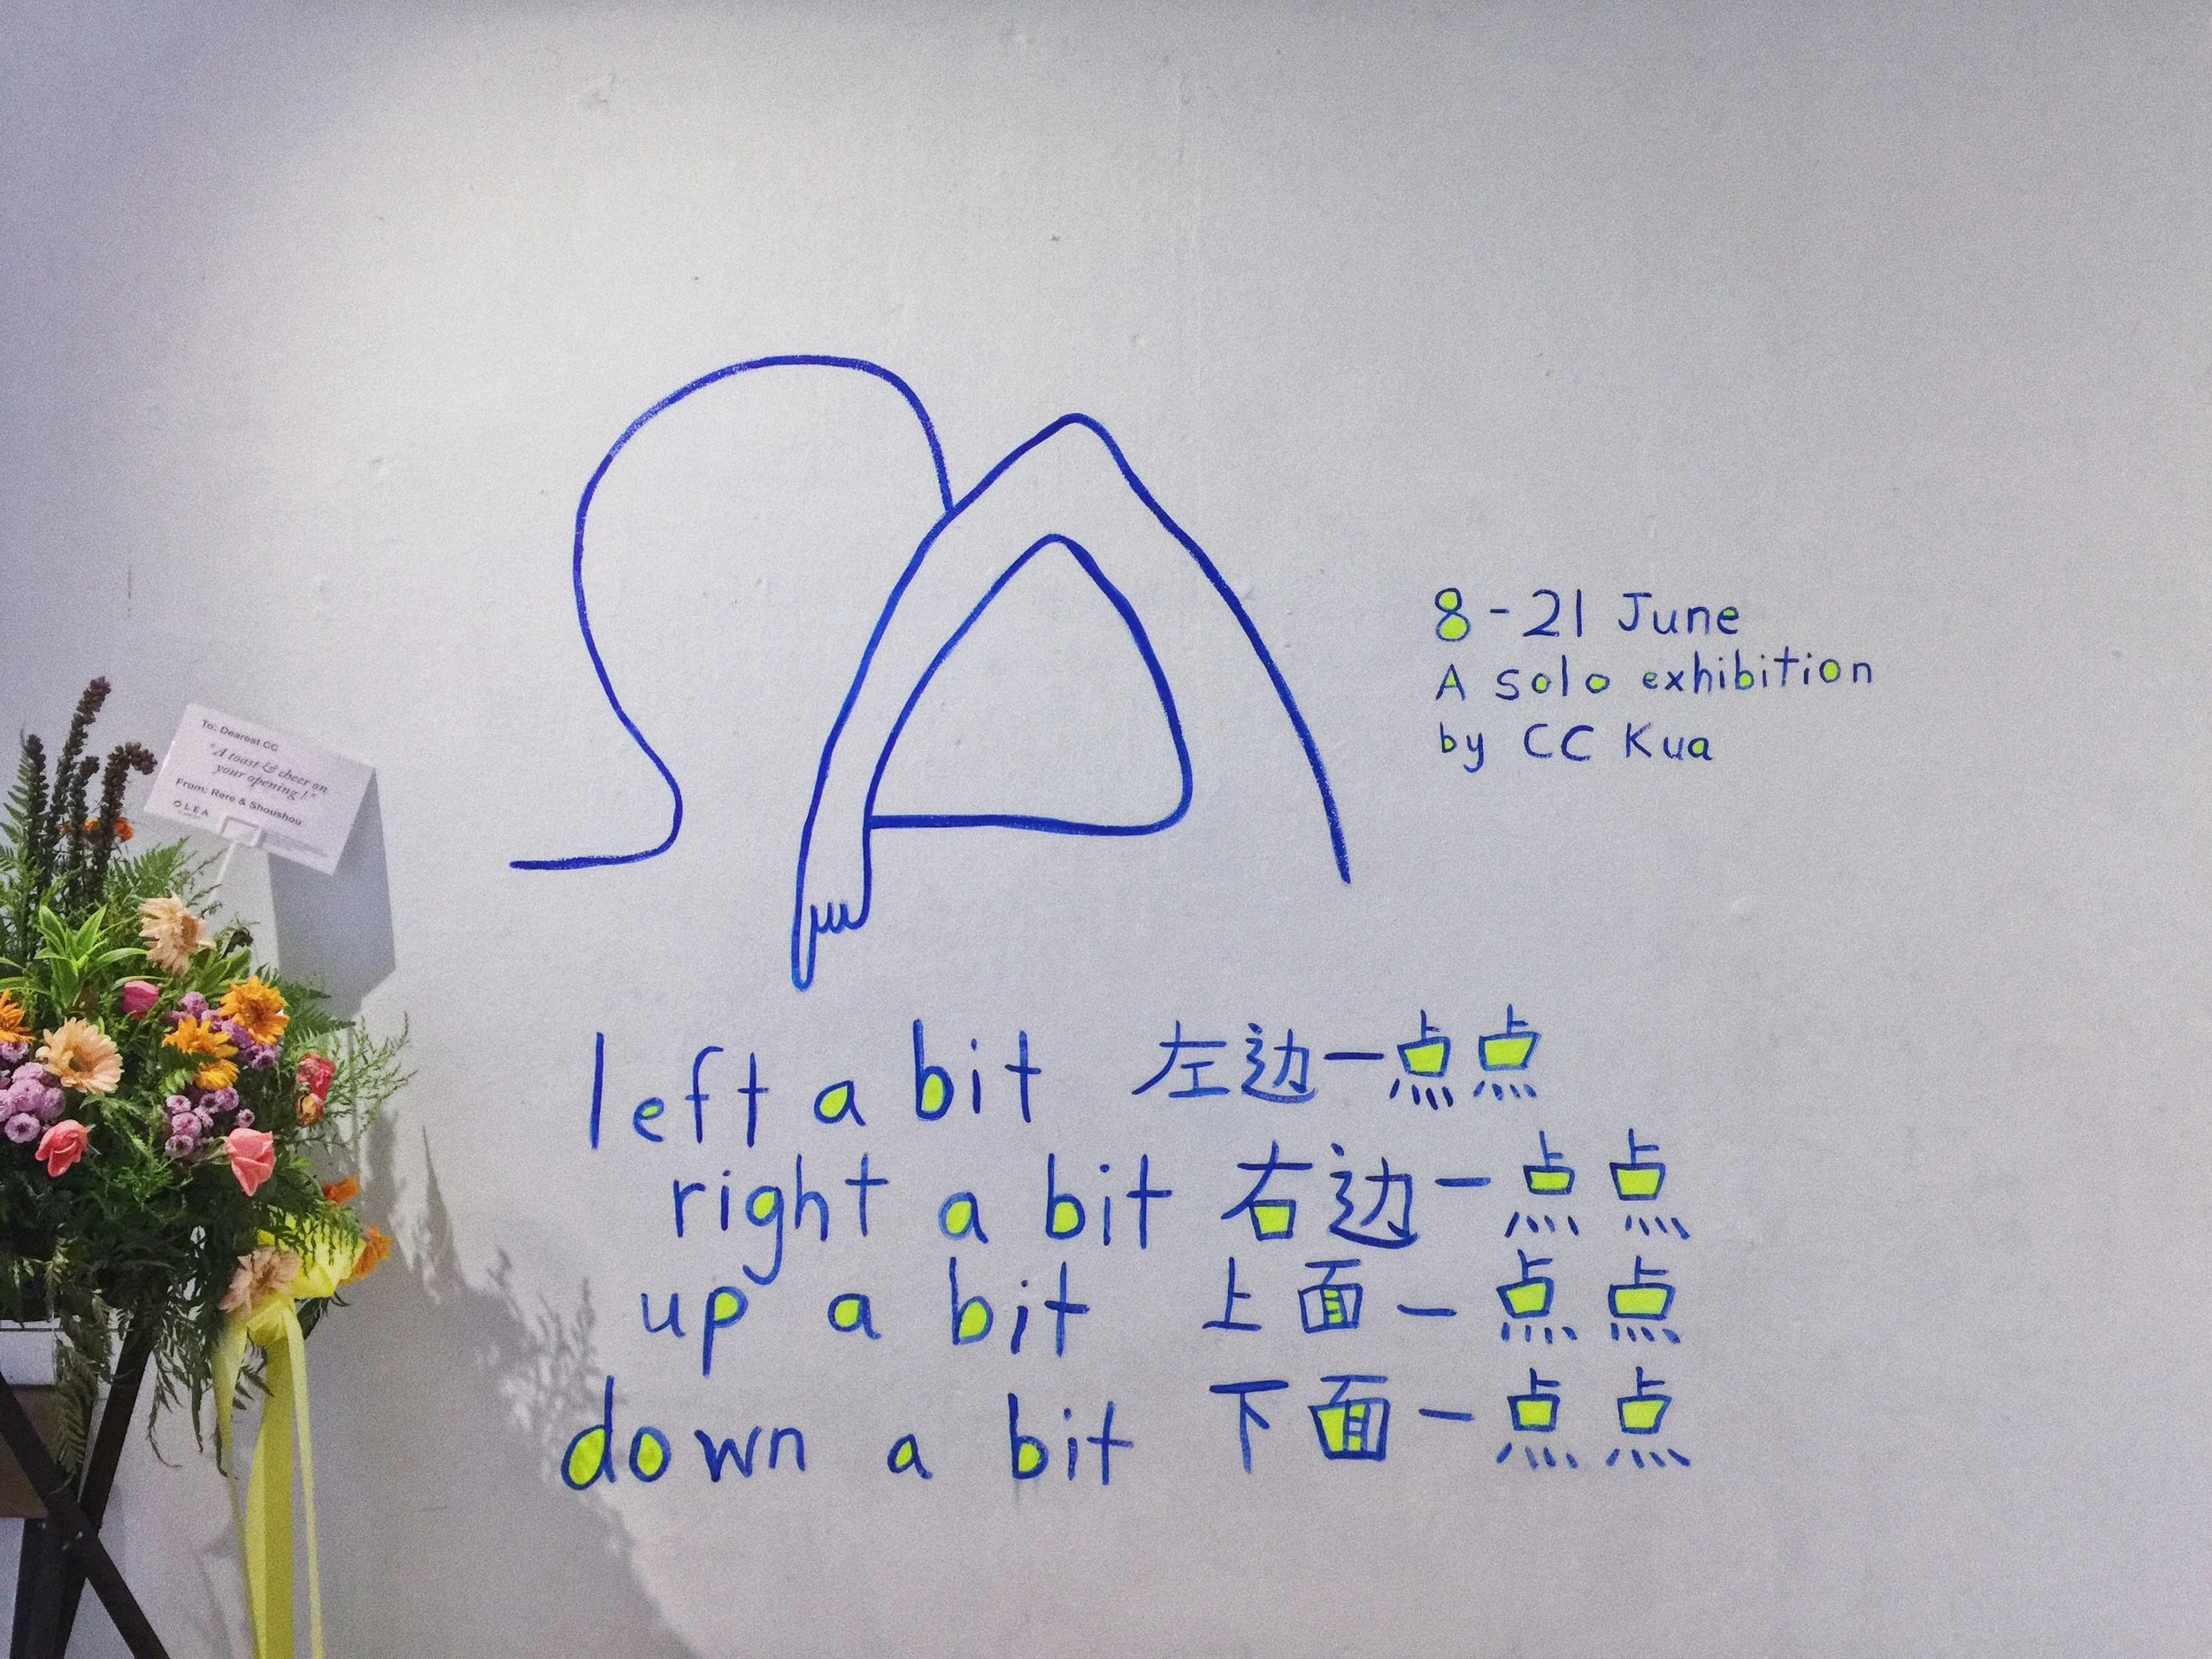 To: Dearest CC
"A toast & cheer on
your opening!"
From: Rere & Shoushou
OLEA
8-21 June
A solo exhibition
by CC Kua
left a bit 左边一点点
right a bit 右边一点点
up a bit 上面一点点
down a bit 下面一点点